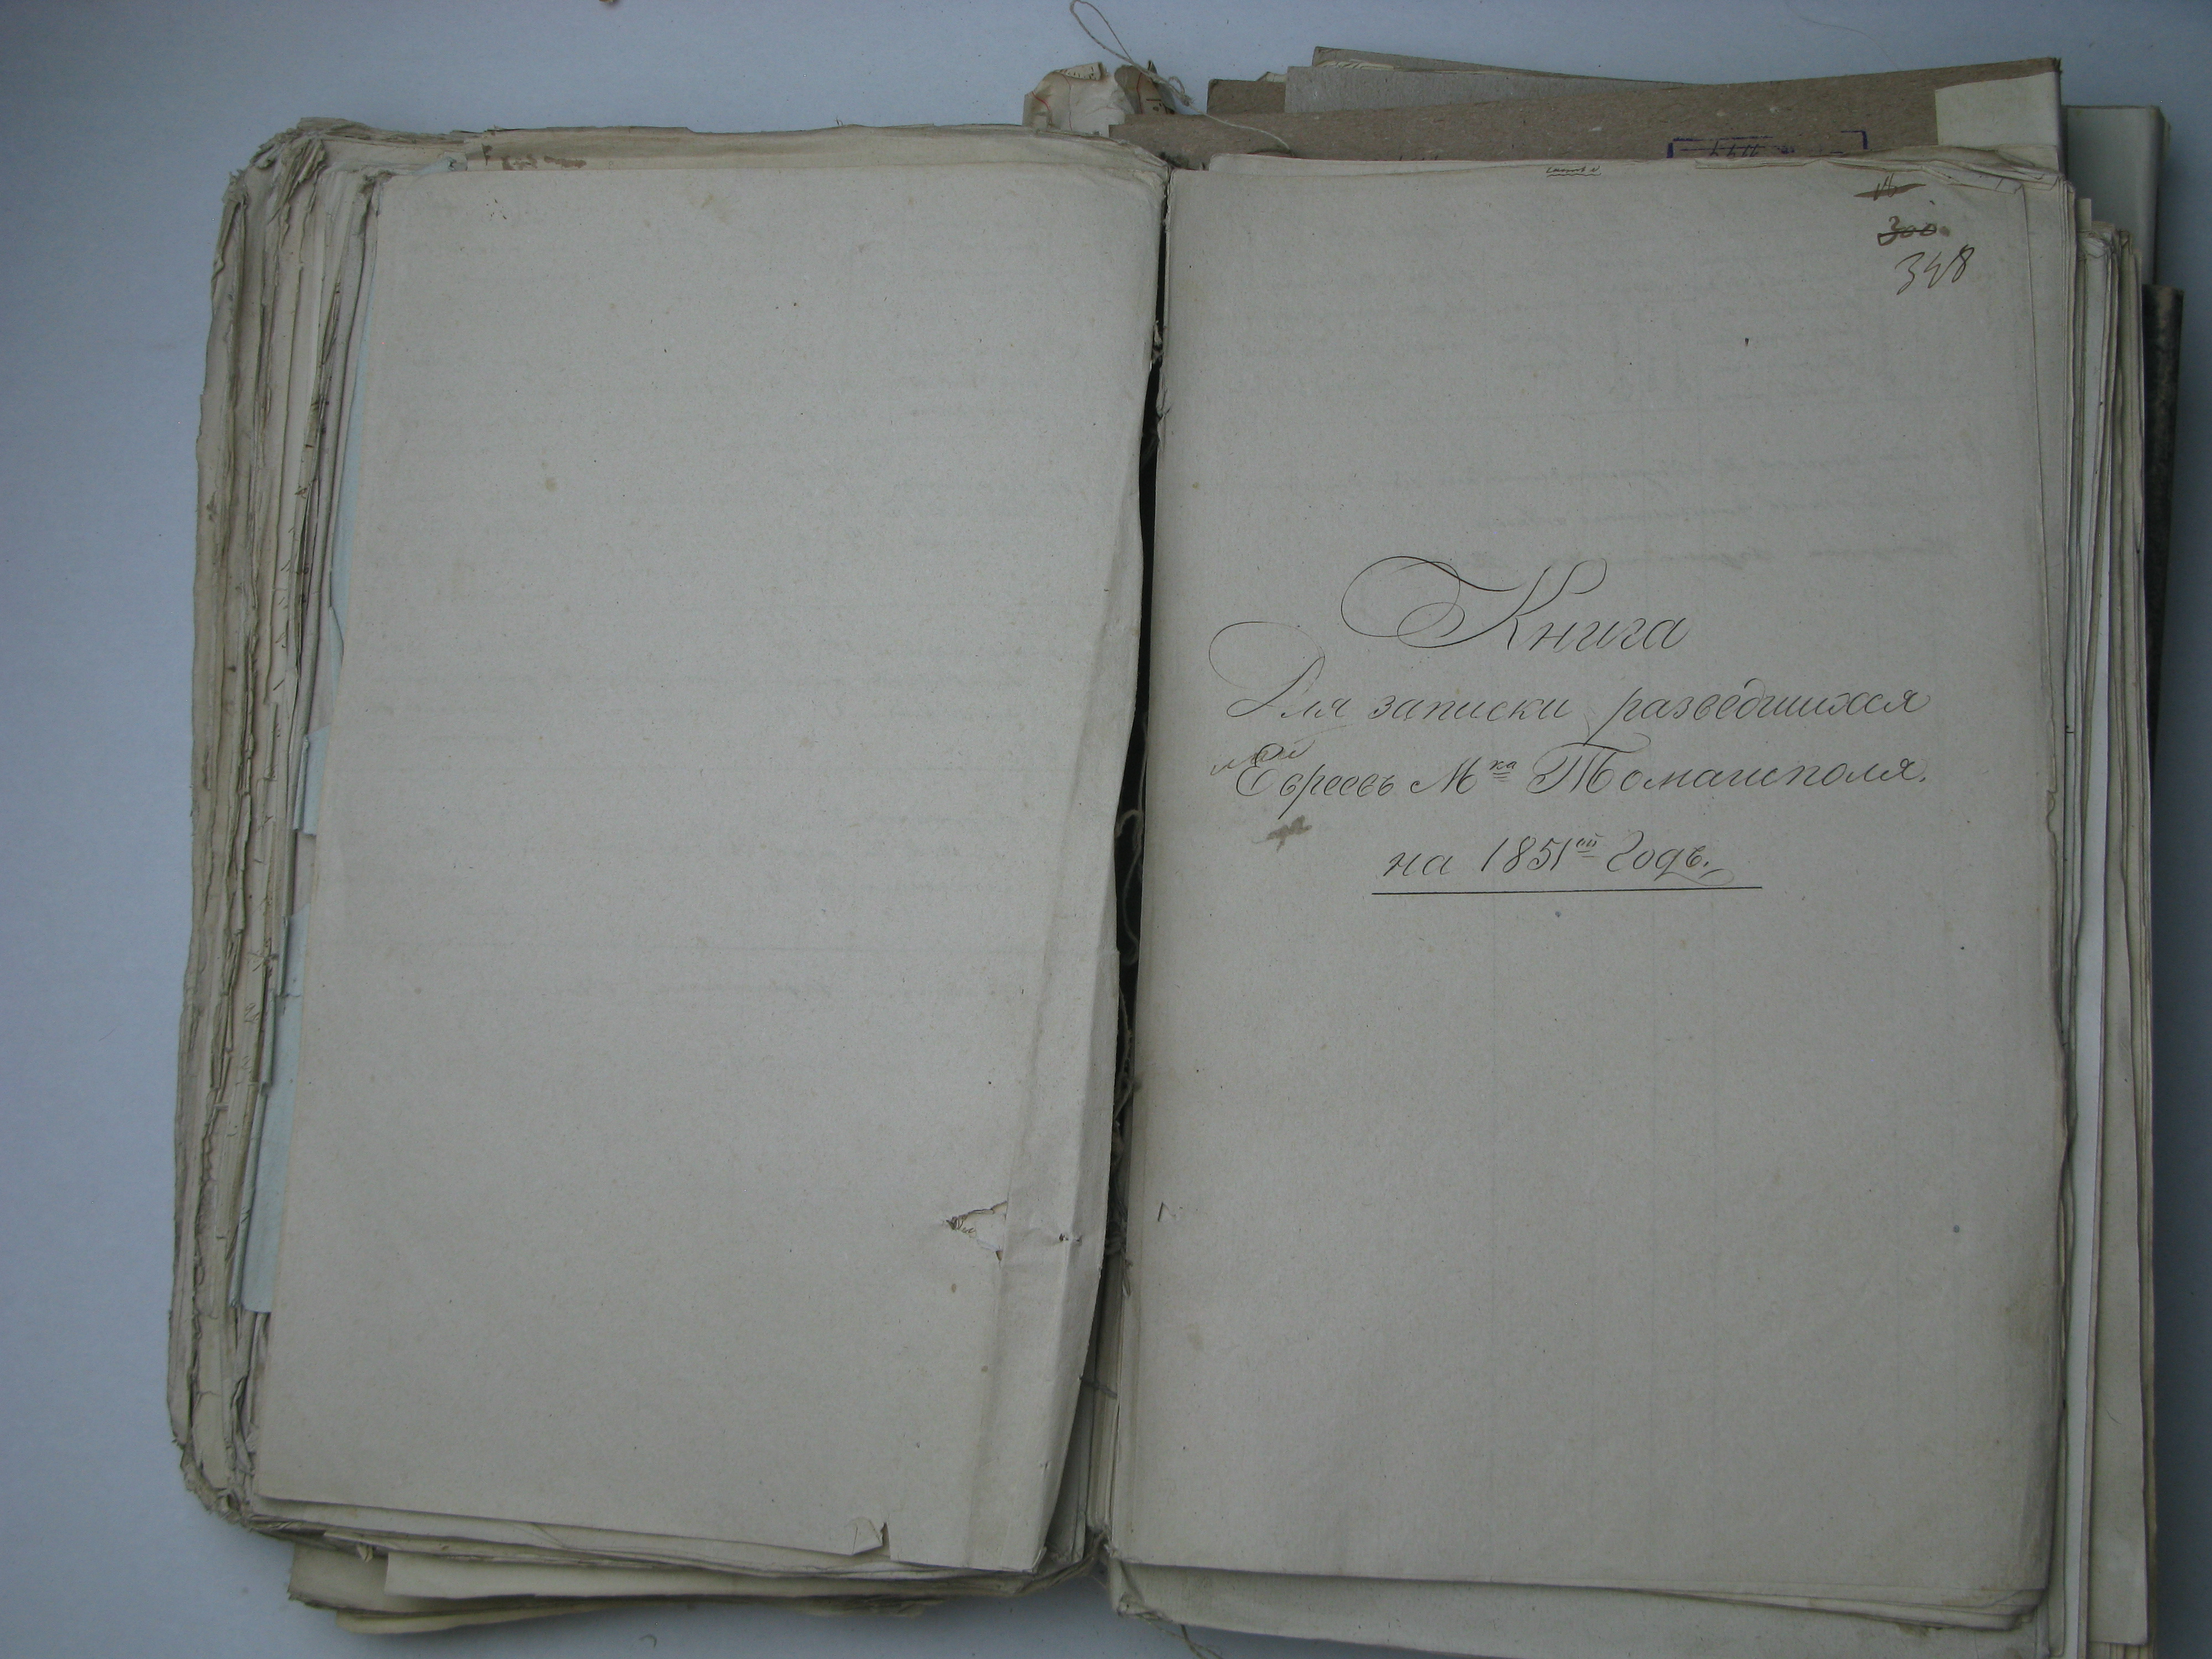 300.
348
Книга
Для записки разведшихся
Евреевъ Мка Томашполя.
на 1851ой Годъ.